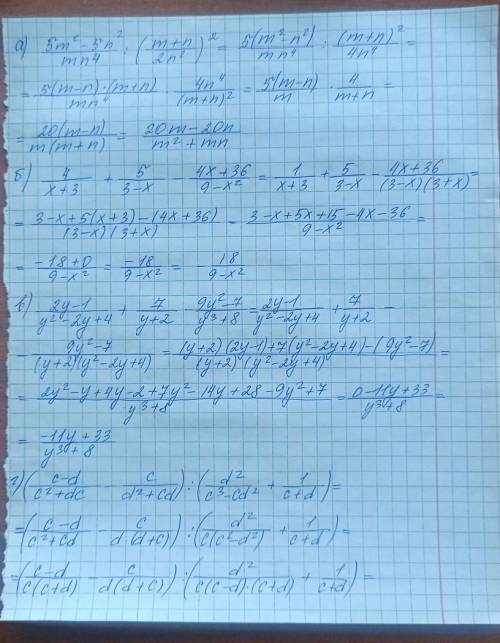 а) (5m²-5n²)/(mn⁴) : ((m+n)/(2n²))² = 5(m²-n²)/(mn⁴) : (m+n)²/(4n⁴) =
= 5(m-n)·(m+n)/(mn⁴) · 4n⁴/(m+n)² = 5(m-n)/m · 4/(m+n) =
= 20(m-n)/(m(m+n)) = (20m-20n)/(m²+mn)
б) 4/(x+3) + 5/(3-x) - (4x+36)/(9-x²) = 1/(x+3) + 5/(3-x) - (4x+36)/((3-x)(3+x)) =
= (3-x+5(x+3)-(4x+36))/((3-x)(3+x)) = (3-x+5x+15-4x-36)/(9-x²) =
= (-18+0)/(9-x²) = -18/(9-x²) = - 18/(9-x²)
в) (2y-1)/(y²-2y+4) + 7/(y+2) - (9y²-7)/(y³+8) = (2y-1)/(y²-2y+4) + 7/(y+2) -
- (9y²-7)/((y+2)(y²-2y+4)) = ((y+2)(2y-1)+7(y²-2y+4)-(9y²-7))/((y+2)(y²-2y+4)) =
= (2y²-y+4y-2+7y²-14y+28-9y²+7)/(y³+8) = (0-11y+33)/(y³+8) =
= (-11y+33)/(y³+8)
г) ((c-d)/(c²+dc) - c/(d²+cd)) : (d²/(c³-cd²) + 1/(c+d)) =
= ((c-d)/(c²+cd) - c/(d(d+c))) : (d²/(c(c²-d²)) + 1/(c+d)) =
= ((c-d)/(c(c+d)) - c/(d(d+c))) : (d²/(c(c-d)·(c+d)) + 1/(c+d)) =